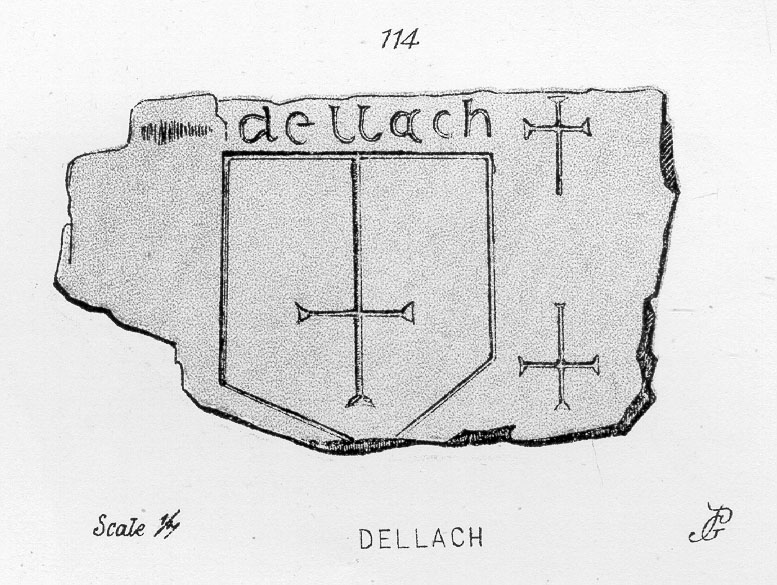 114
dellach
Scale
DELLACH